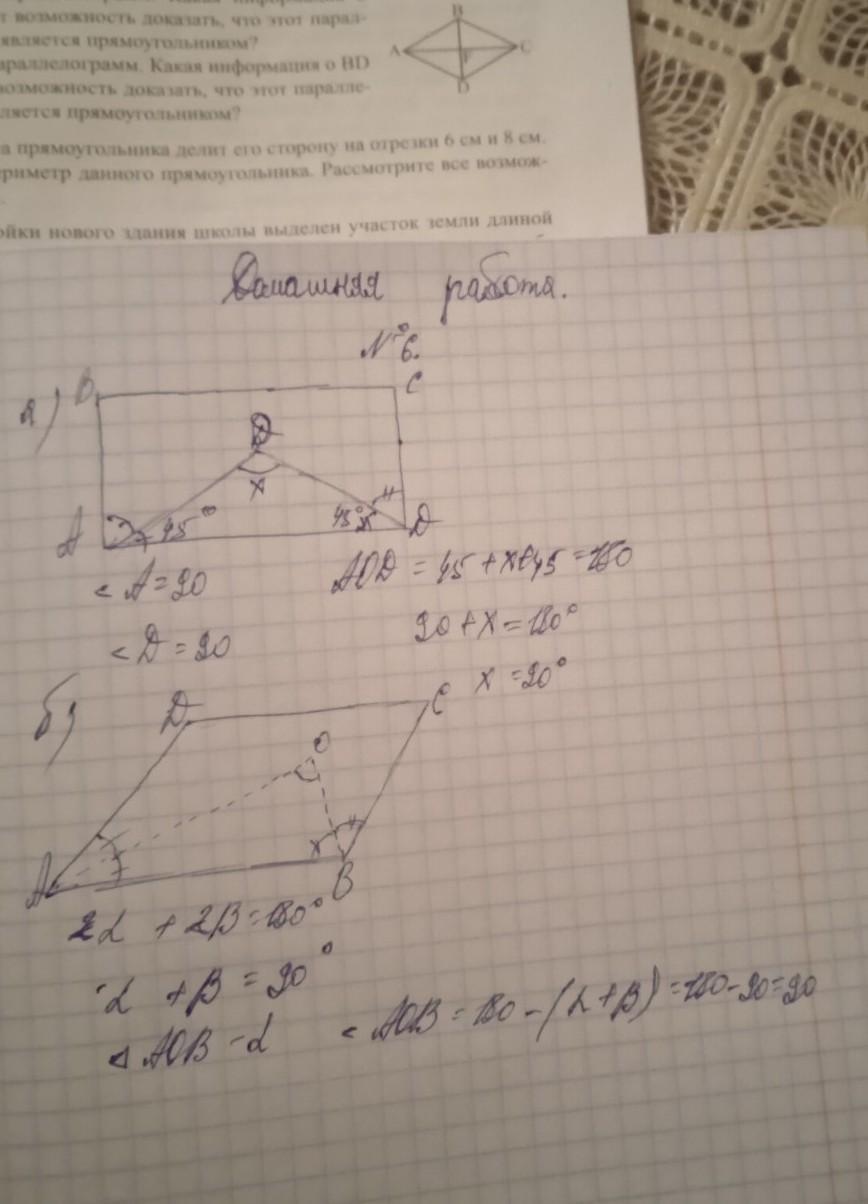 т возможность доказать, что этот парал-
является прямоугольником?
араллелограмм. Какая информация о BD
возможность доказать, что этот паралле-
ляется прямоугольником?
B
A
C
F
D
а прямоугольника делит его сторону на отрезки 6 см и 8 см.
ериметр данного прямоугольника. Рассмотрите все возмож-
ойки нового здания школы выделен участок земли длиной
Домашняя работа.
№6.
а)
B
C
x
45°
45°
A
D
< A = 90
AOD = 45 + x + 45 = 180
< D = 90
90 + x = 180°
x = 90°
б)
D
C
O
x
A
B
2α + 2β = 180°
α + β = 90°
AOB - α
< AOB = 180 - (α + β) = 180 - 90 = 90